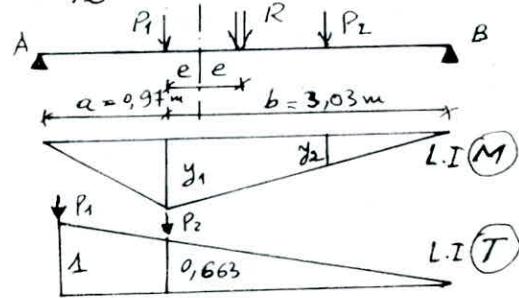 P1 R P2
A B
e e
a = 0,97 m b = 3,03 m
y1 y2 L.I (M)
P1 P2
1 0,663 L.I (T)